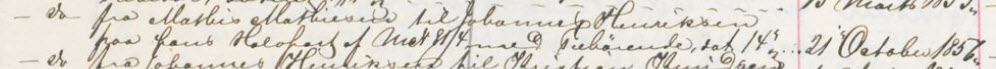 - do fra Mathis Mathiesen til Johannes Henriksen
paa hans Halvpart af Mat N 81/4 med Tilbörende, dat 14de ... 21 October 1856.
- do fra Johannes Henriksen til Kristian